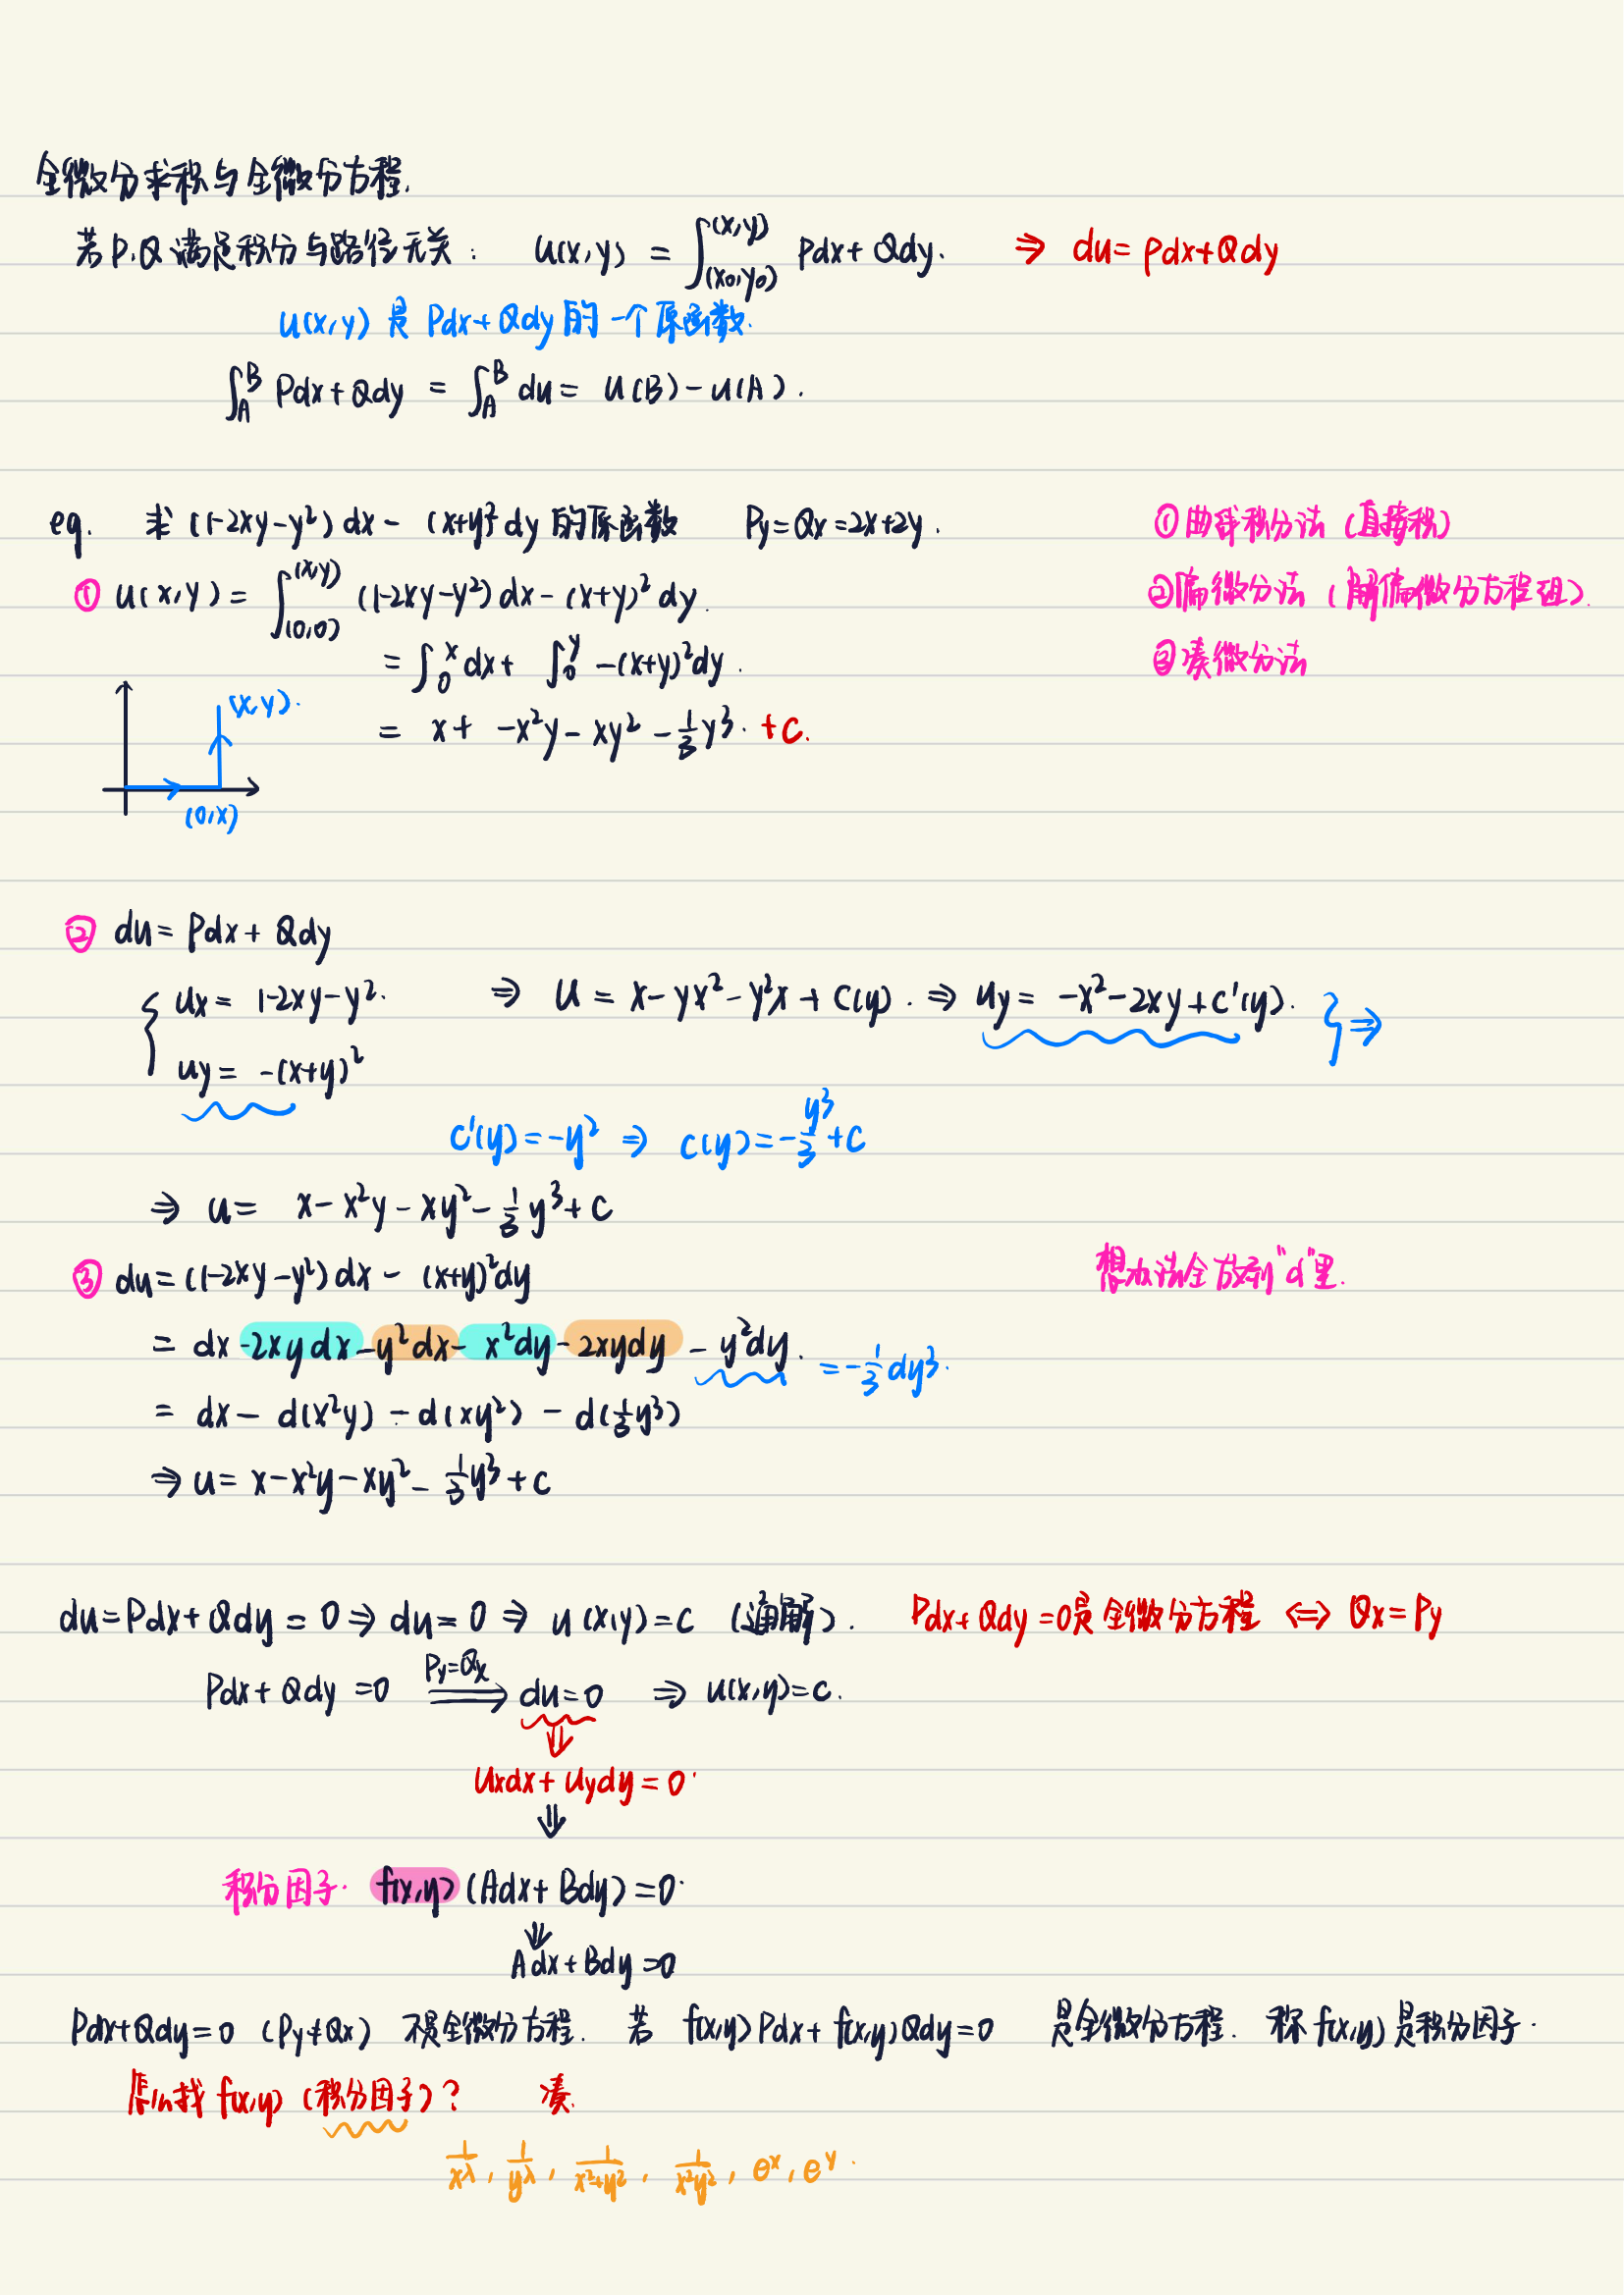 全微分求积与全微分方程.
若P.Q满足积分与路径无关: u(x,y) = ∫_(x₀,y₀)^(x,y) Pdx+Qdy. ⇒ du=Pdx+Qdy
u(x,y) 是 Pdx+Qdy的一个原函数.
∫_A^B Pdx+Qdy = ∫_A^B du = u(B)-u(A).
eg. 求 (1-2xy-y²)dx - (x+y)²dy的原函数 Py=Qx=2x+2y. ①曲线积分法(直接积)
① u(x,y) = ∫_(0,0)^(x,y) (1-2xy-y²)dx-(x+y)²dy. ②偏微分法(解偏微分方程组).
= ∫_0^x dx + ∫_0^y -(x+y)²dy. ③凑微分法
= x+ -x²y-xy²-1/3y³. +c.
(x,y).
(0,x)
② du=Pdx+Qdy
ux= 1-2xy-y². ⇒ u = x-yx²-y²x+c(y). ⇒ uy= -x²-2xy+c'(y). } ⇒
uy= -(x+y)²
c'(y)=-y² ⇒ c(y)=-y³/3+c
⇒ u= x-x²y-xy²-1/3y³+c
③ du=(1-2xy-y²)dx - (x+y)²dy 想办法全放到"d"里.
= dx-2xydx-y²dx-x²dy-2xydy-y²dy. =-1/3dy³.
= dx-d(x²y)-d(xy²)-d(1/3y³)
⇒ u=x-x²y-xy²-1/3y³+c
du=Pdx+Qdy=0 ⇒ du=0 ⇒ u(x,y)=c (通解). Pdx+Qdy=0是全微分方程 ⇔ Qx=Py
Pdx+Qdy=0 Py=Qx ⇒ du=0 ⇒ u(x,y)=c.
⇓
Uxdx+Uydy=0.
⇓
积分因子. f(x,y)(Adx+Bdy)=0.
⇓
Adx+Bdy=0
Pdx+Qdy=0 (Py≠Qx) 不是全微分方程. 若 f(x,y)Pdx+f(x,y)Qdy=0 是全微分方程. 称f(x,y)是积分因子.
怎么找f(x,y) (积分因子)? 凑.
1/x^λ, 1/y^λ, 1/(x²+y²), 1/(x²y²), e^x, e^y.